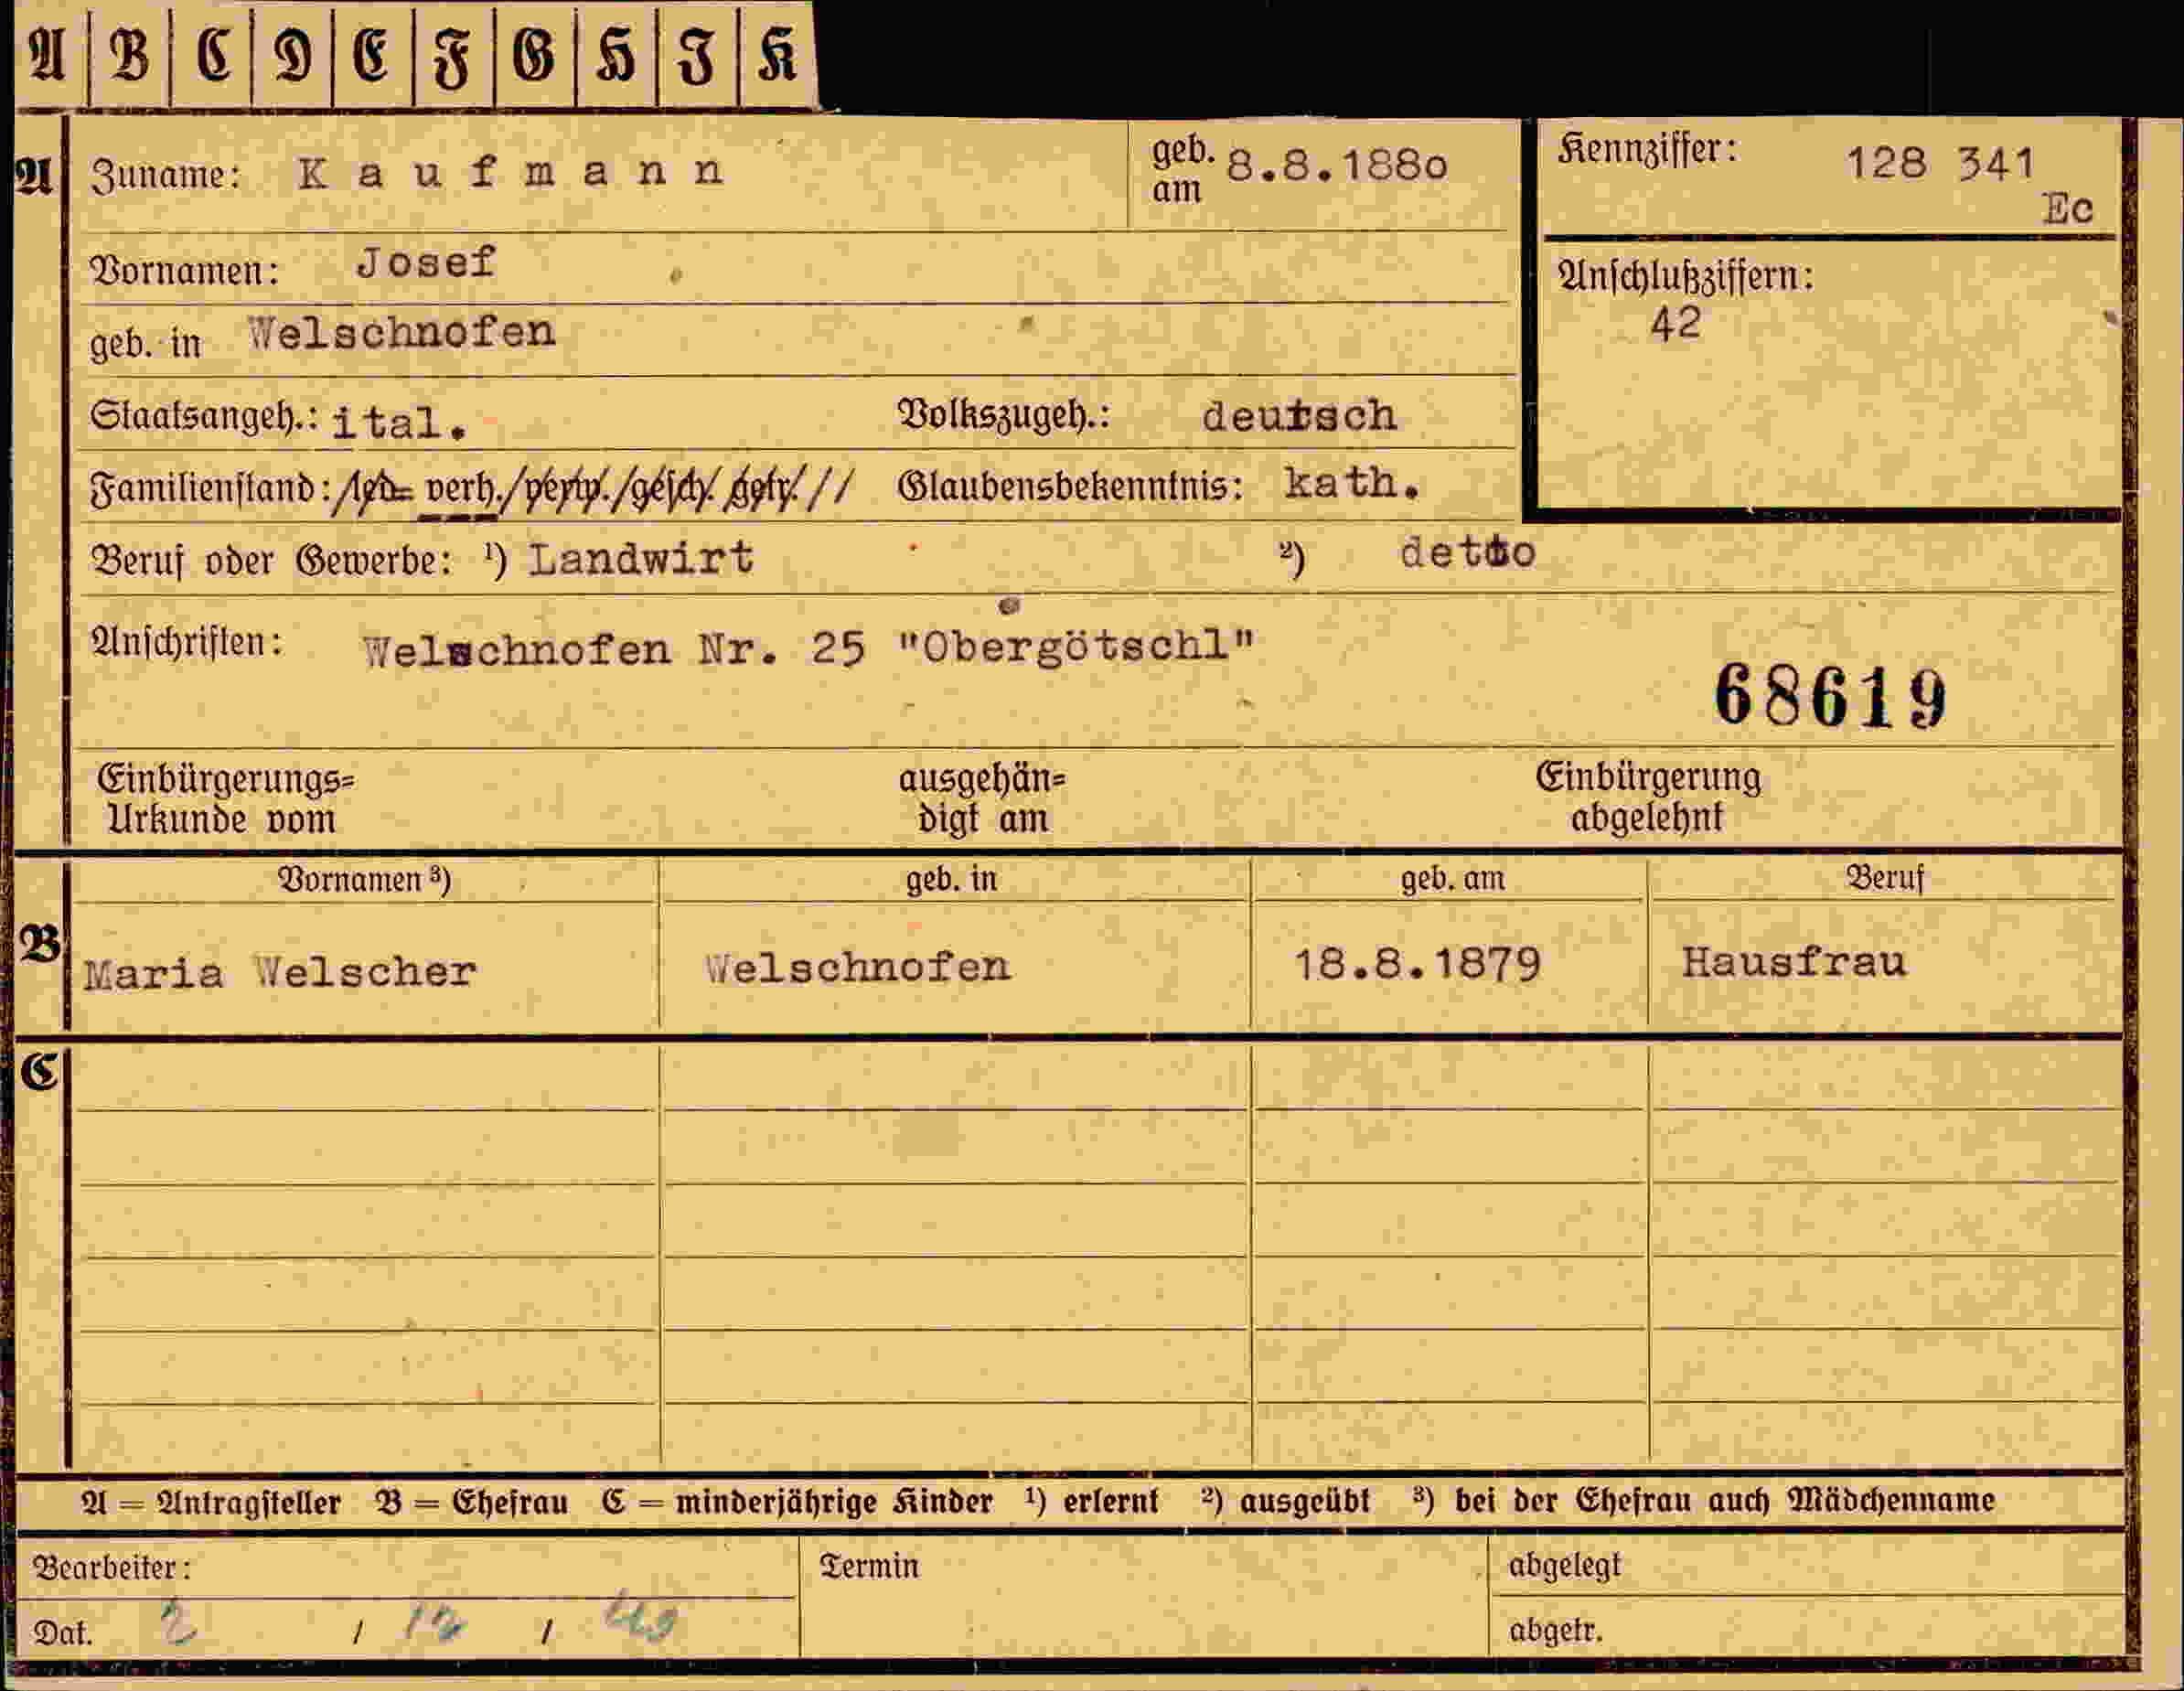 A B C D E F G H I K
A Zuname: Kaufmann geb. am 8.8.1880 Kennziffer: 128 341
Ec
Vornamen: Josef Anschlußziffern:
42
geb. in Welschnofen
Staatsangeh.: ital. Volkszugeh.: deutsch
Familienstand: /led. verh./verw./gesch. getr.// Glaubensbekenntnis: kath.
Beruf oder Gewerbe: ¹) Landwirt ²) detto
Anschriften: Welschnofen Nr. 25 "Obergötschl"
68619
Einbürgerungs= ausgehän= Einbürgerung
Urkunde vom digt am abgelehnt
Vornamen ³) geb. in geb. am Beruf
B Maria Welscher Welschnofen 18.8.1879 Hausfrau
C
A = Antragsteller B = Ehefrau C = minderjährige Kinder ¹) erlernt ²) ausgeübt ³) bei der Ehefrau auch Mädchenname
Bearbeiter: Termin abgelegt
Dat. 2 / 12 / abgetr.